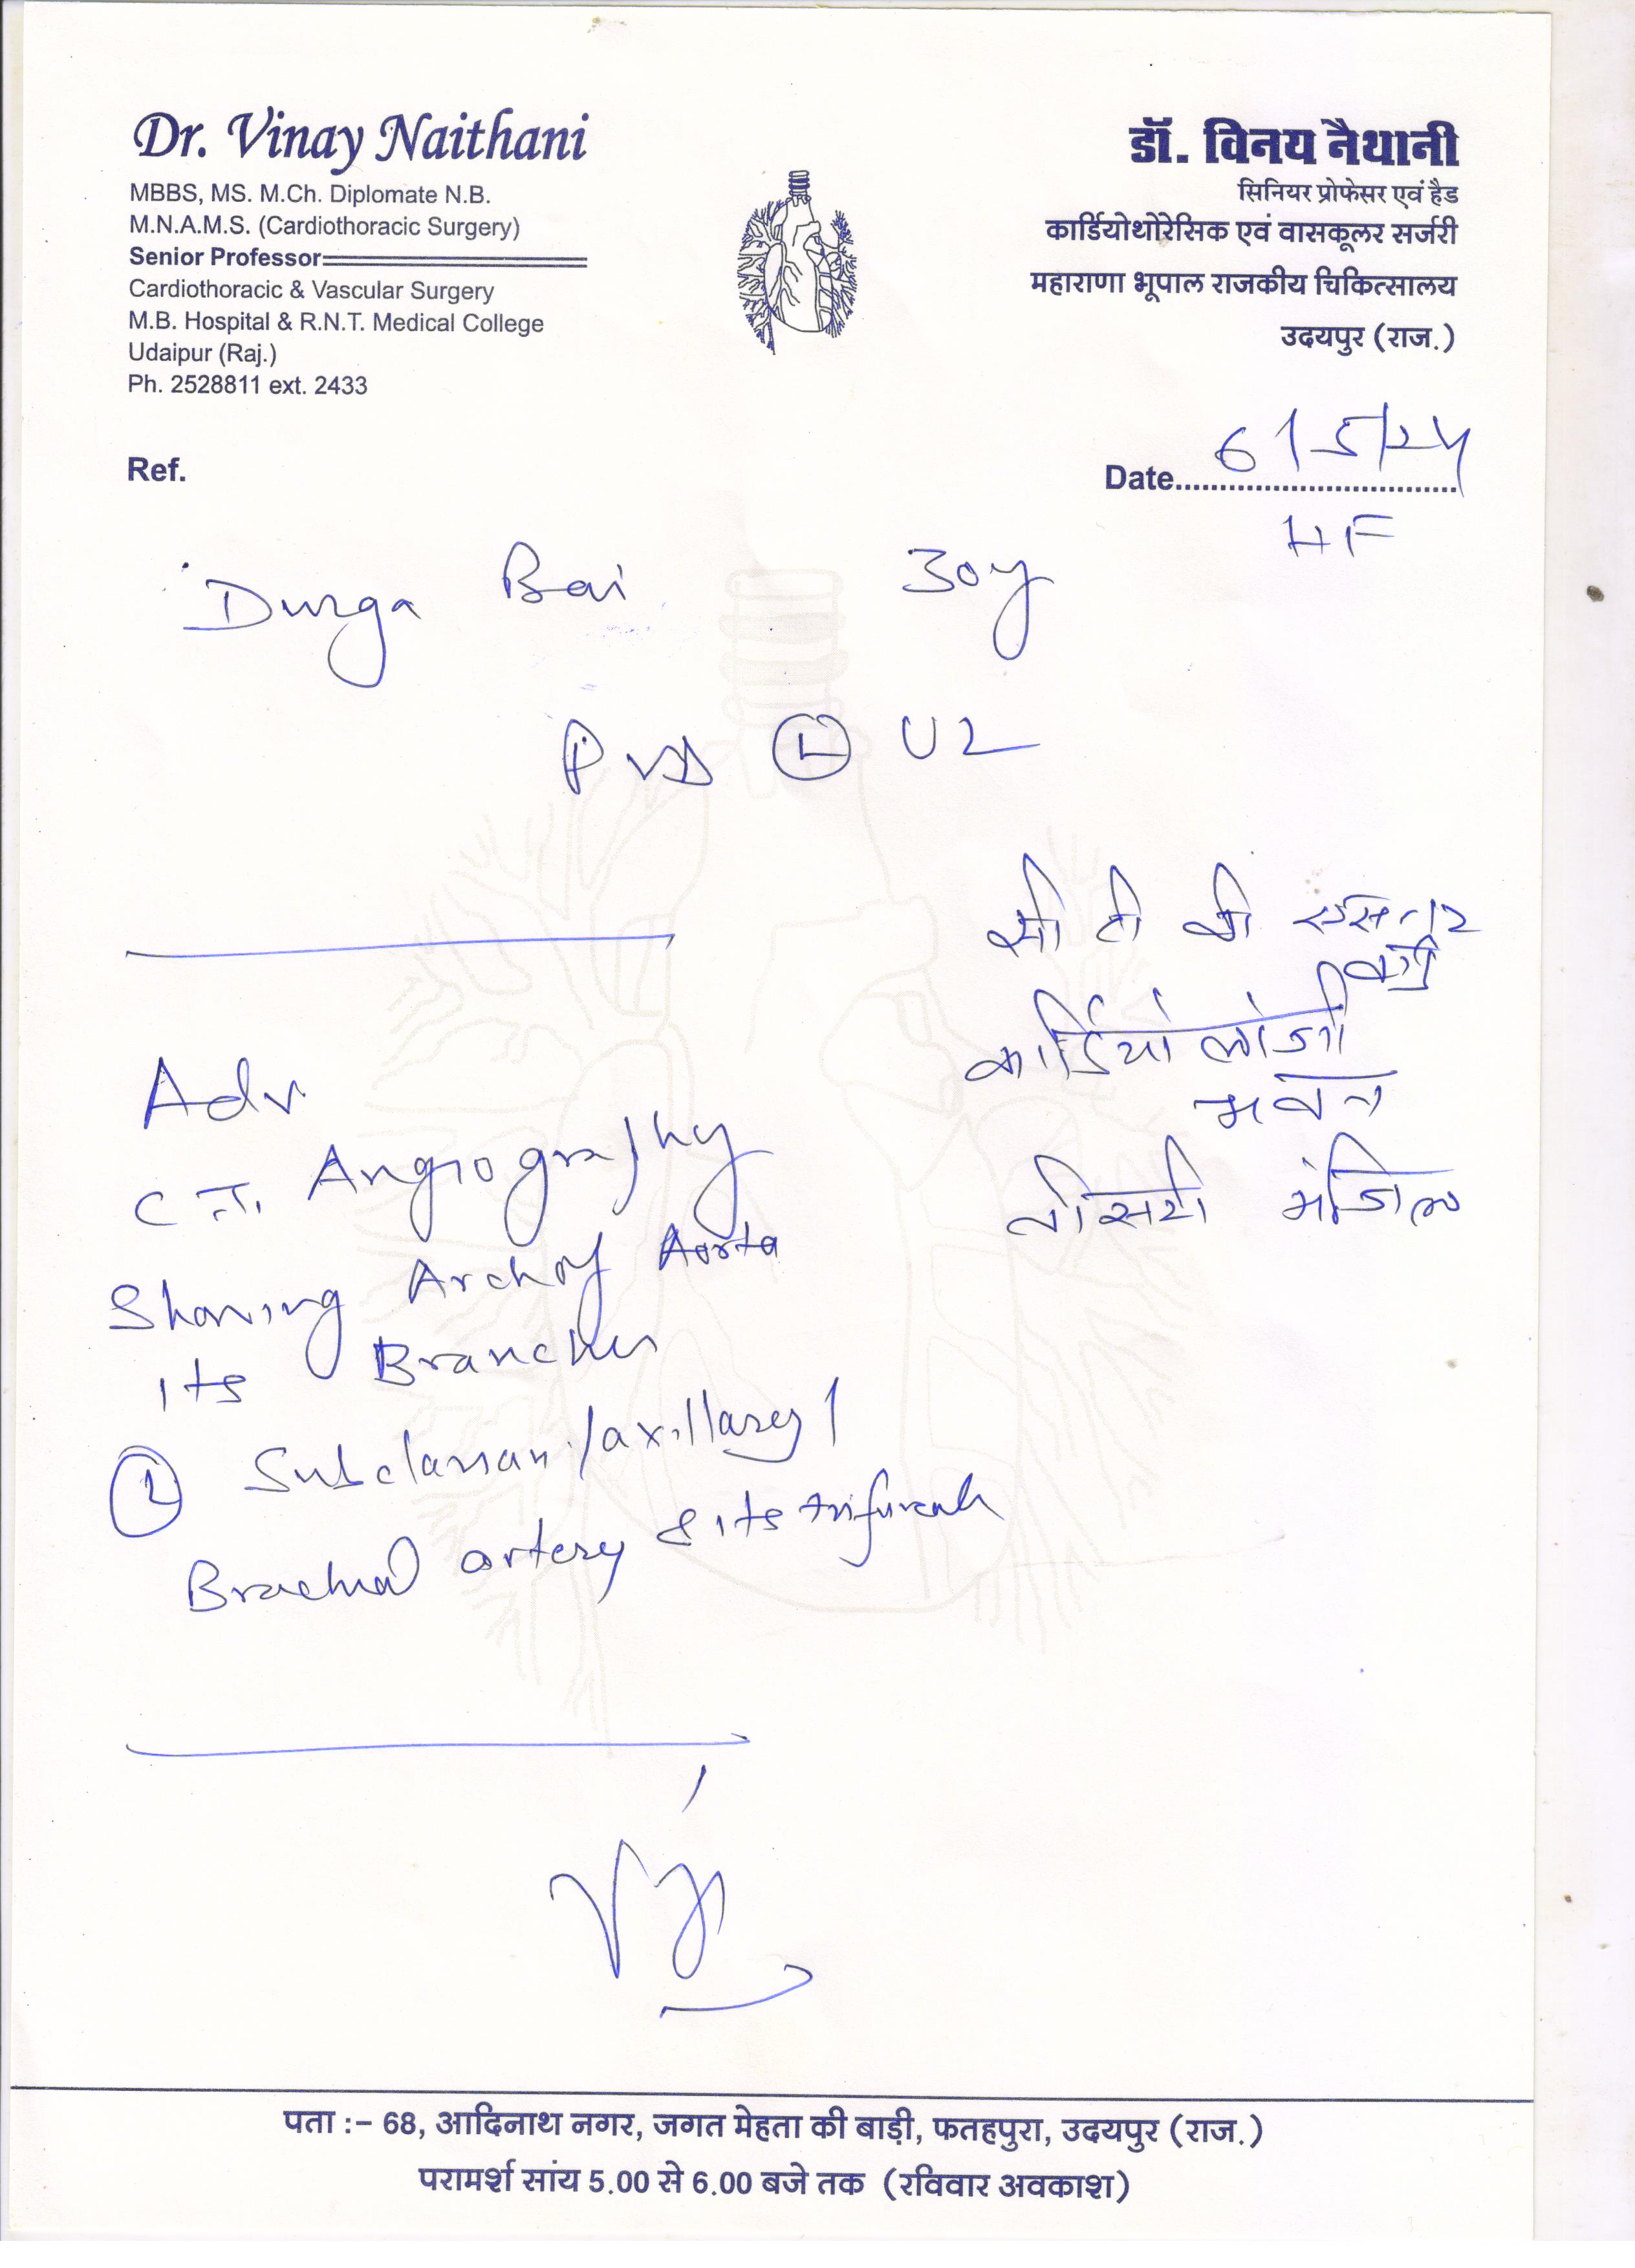 Dr. Vinay Naithani
MBBS, MS. M.Ch. Diplomate N.B.
M.N.A.M.S. (Cardiothoracic Surgery)
Senior Professor
Cardiothoracic & Vascular Surgery
M.B. Hospital & R.N.T. Medical College
Udaipur (Raj.)
Ph. 2528811 ext. 2433
डॉ. विनय नैथानी
सिनियर प्रोफेसर एवं हैड
कार्डियोथोरेसिक एवं वासकूलर सर्जरी
महाराणा भूपाल राजकीय चिकित्सालय
उदयपुर (राज.)
Ref.
Date 6/5/24
HF
Durga Bai 30y
PVD Ⓛ UL
सी टी वी एस
कार्डियोलोजी
भवन
तीसरी मंजिल
Adv
C.T. Angiography
Showing Arch of Aorta
its Branches
Ⓛ Subclavian/axillary/
Brachial artery & its
पता :– 68, आदिनाथ नगर, जगत मेहता की बाड़ी, फतहपुरा, उदयपुर (राज.)
परामर्श सांय 5.00 से 6.00 बजे तक (रविवार अवकाश)